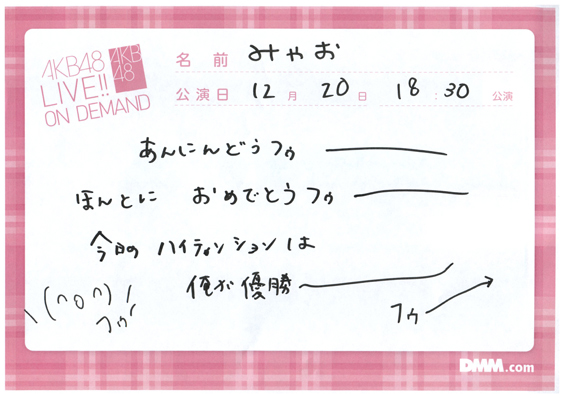 AKB48
LIVE!!
ON DEMAND
AKB
48
名前 みゃお
公演日 12月 20日 18:30 公演
あんにんどうフゥ
ほんとに おめでとうフゥ
今日の ハイテンションは
俺が優勝
\(∩o∩)/
フゥ
フゥ
DMM.com